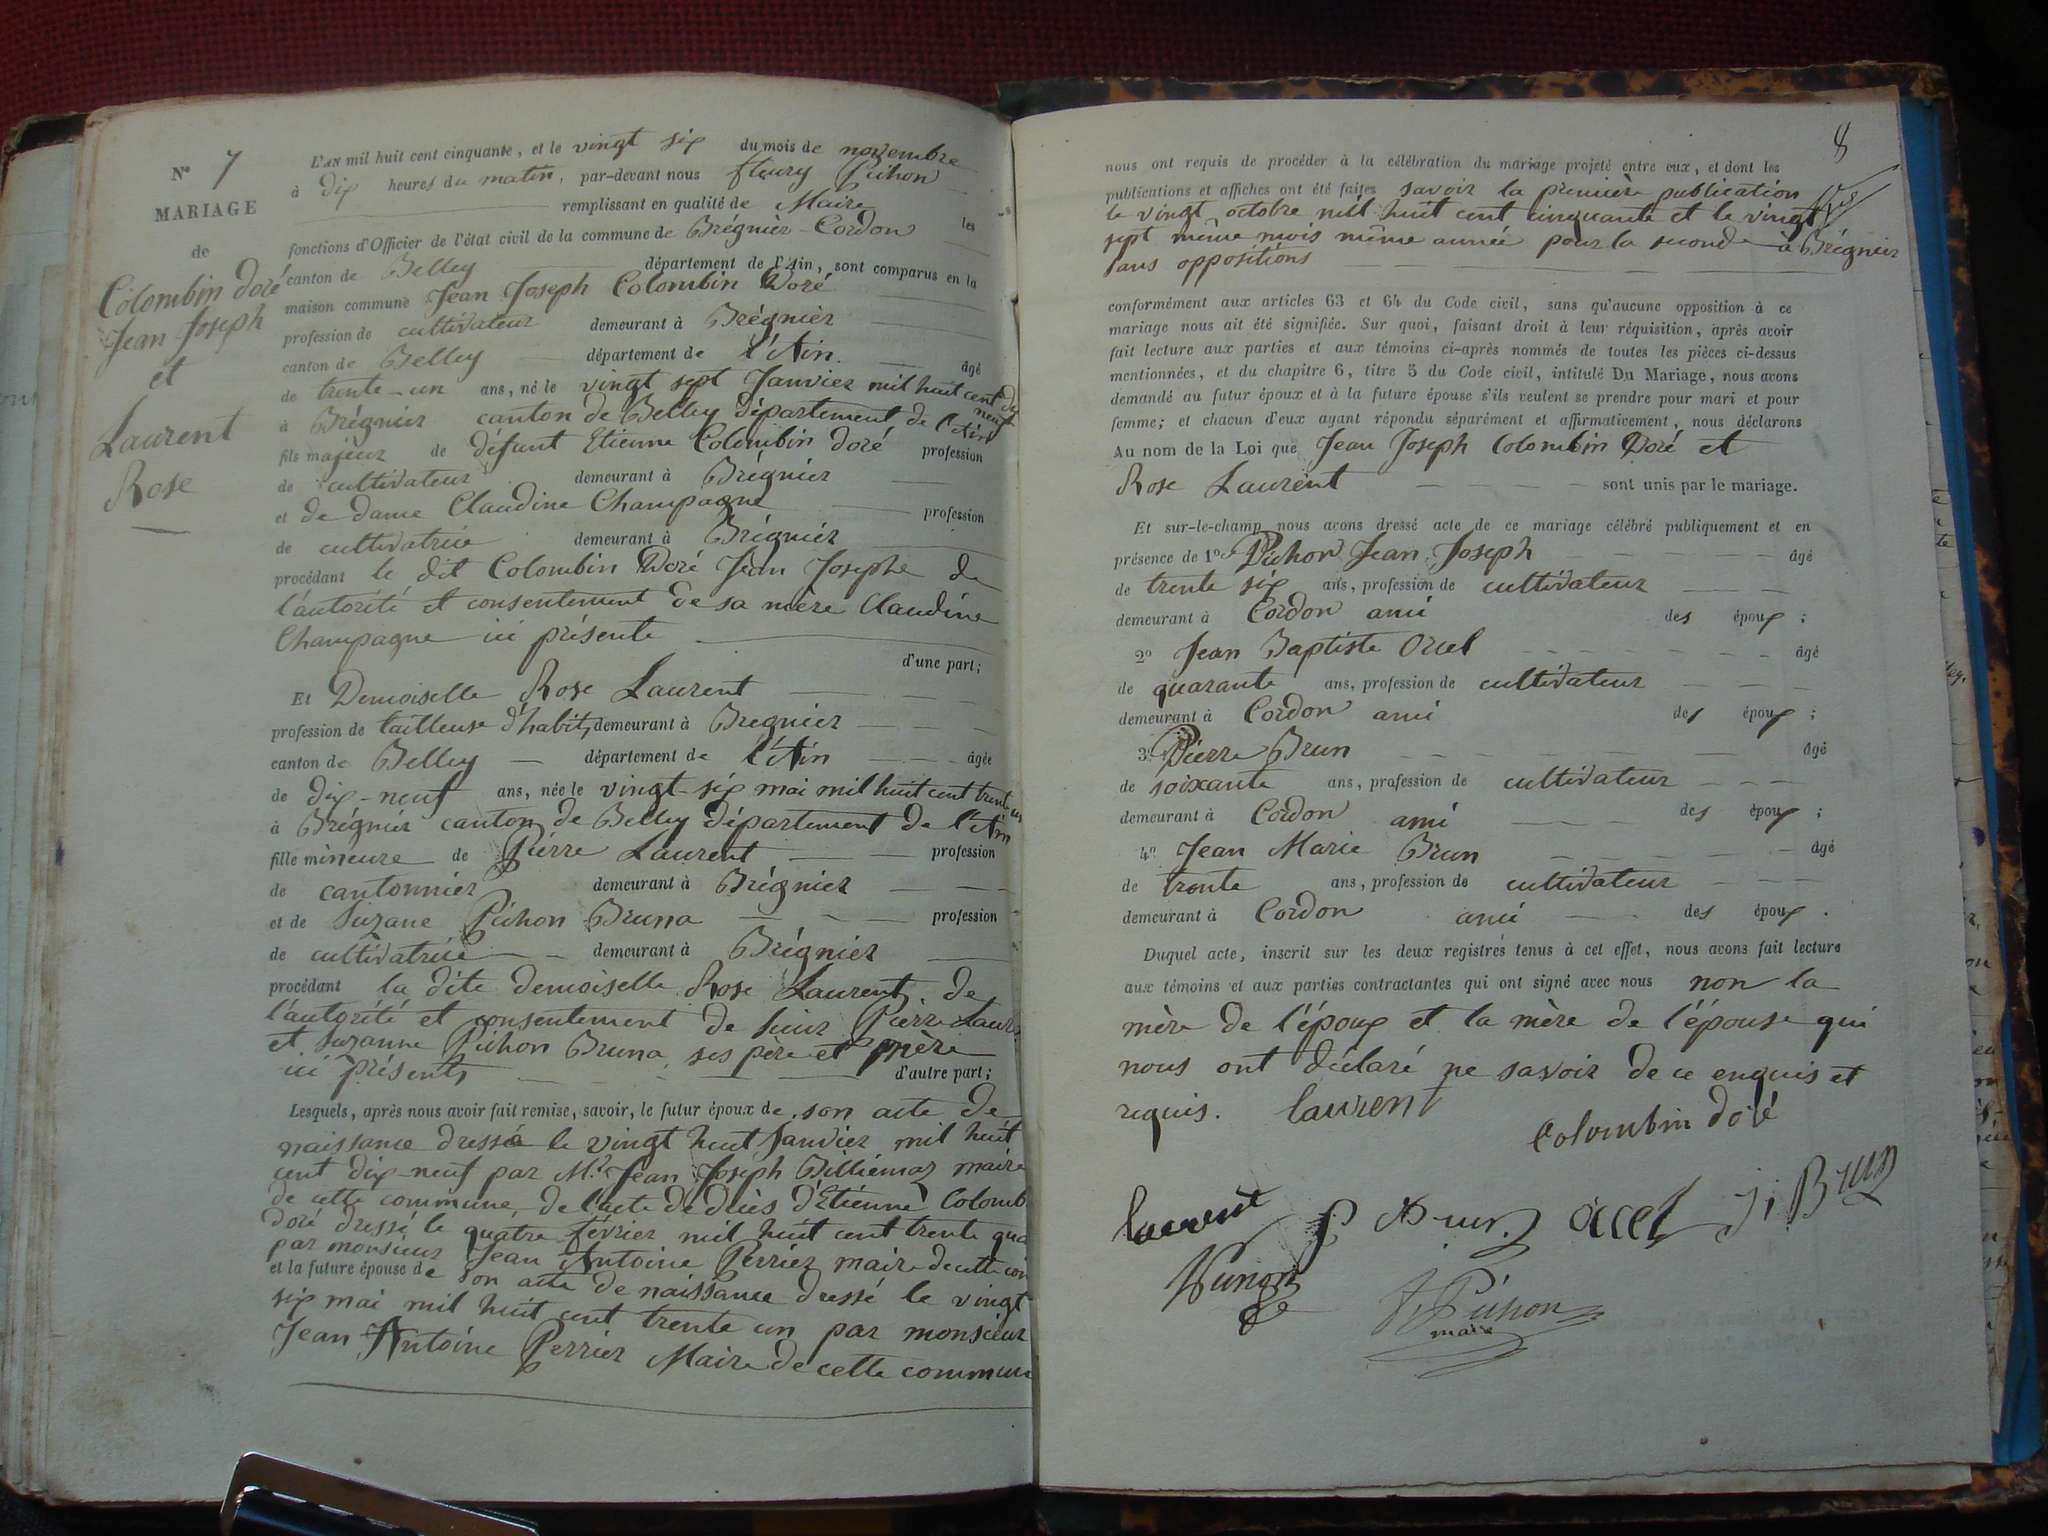 N° 7
MARIAGE
de
Colombin doré
Jean Joseph
et
Laurent
Rose
L'AN mil huit cent cinquante, et le vingt six du mois de novembre
à dix heures du matin, par-devant nous fleury Pichon
remplissant en qualité de Maire les
fonctions d'Officier de l'état civil de la commune de Brégnier-Cordon
canton de Belley département de l'Ain, sont comparus en la
maison commune Jean Joseph Colombin Doré
profession de cultivateur demeurant à Brégnier
canton de Belley département de l'Ain. âgé
de trente-un ans, né le vingt sept Janvier mil huit cent dix neuf
à Brégnier canton de Belley département de l'Ain
fils majeur de défunt Etienne Colombin doré profession
de cultivateur demeurant à Brégnier
et de dame Claudine Champagne profession
de cultivatrice demeurant à Brégnier
procédant le dit Colombin Doré Jean Josephe de
l'autorité et consentement de sa mère Claudine
Champagne ici présente
d'une part;
Et Demoiselle Rose Laurent
profession de tailleuse d'habits demeurant à Bregnier
canton de Belley département de l'Ain âgée
de dix-neuf ans, née le vingt-six mai mil huit cent trente un
à Brégnier canton de Belley département de l'Ain
fille mineure de Pierre Laurent profession
de cantonnier demeurant à Brégnier
et de Suzane Pichon Bruna profession
de cultivatrice demeurant à Brégnier
procédant la dite demoiselle Rose Laurent de
l'autorité et consentement de sieur Pierre Laur
et Suzanne Pichon Bruna ses père et mère
ici présents d'autre part;
Lesquels, après nous avoir fait remise, savoir, le futur époux de son acte de
naissance dressé le vingt huit Janvier mil huit
cent dix-neuf par Mr. Jean Joseph Billiémaz maire
de cette commune, de l'acte de décès d'Etienne Colomb
doré dressé le quatre février mil huit cent trente qua
par monsieur Jean Antoine Perrier maire de cette com
et la future épouse de son acte de naissance dressé le vingt
six mai mil huit cent trente un par monsieur
Jean Antoine Perrier Maire de cette commun
8
nous ont requis de procéder à la célébration du mariage projeté entre eux, et dont les
publications et affiches ont été faites savoir la première publication
le vingt octobre mil huit cent cinquante et le vingt
sept même mois même année pour la seconde à Brégnier
sans oppositions
conformément aux articles 63 et 64 du Code civil, sans qu'aucune opposition à ce
mariage nous ait été signifiée. Sur quoi, faisant droit à leur réquisition, après avoir
fait lecture aux parties et aux témoins ci-après nommés de toutes les pièces ci-dessus
mentionnées, et du chapitre 6, titre 5 du Code civil, intitulé Du Mariage, nous avons
demandé au futur époux et à la future épouse s'ils veulent se prendre pour mari et pour
femme; et chacun d'eux ayant répondu séparément et affirmativement, nous déclarons
Au nom de la Loi que Jean Joseph Colombin Doré et
Rose Laurent sont unis par le mariage.
Et sur-le-champ nous avons dressé acte de ce mariage célébré publiquement et en
présence de 1° Pichon Jean Joseph âgé
de trente six ans, profession de cultivateur
demeurant à Cordon ami des époux;
2° Jean Baptiste Orcel âgé
de quarante ans, profession de cultivateur
demeurant à Cordon ami des époux;
3° Pierre Brun âgé
de soixante ans, profession de cultivateur
demeurant à Cordon ami des époux;
4° Jean Marie Brun âgé
de trente ans, profession de cultivateur
demeurant à Cordon ami des époux.
Duquel acte, inscrit sur les deux registres tenus à cet effet, nous avons fait lecture
aux témoins et aux parties contractantes qui ont signé avec nous non la
mère de l'époux et la mère de l'épouse qui
nous ont déclaré ne savoir de ce enquis et
requis. laurent
Colombin doré
laurent P Brun orcel J. Brun
f Pichon
maire